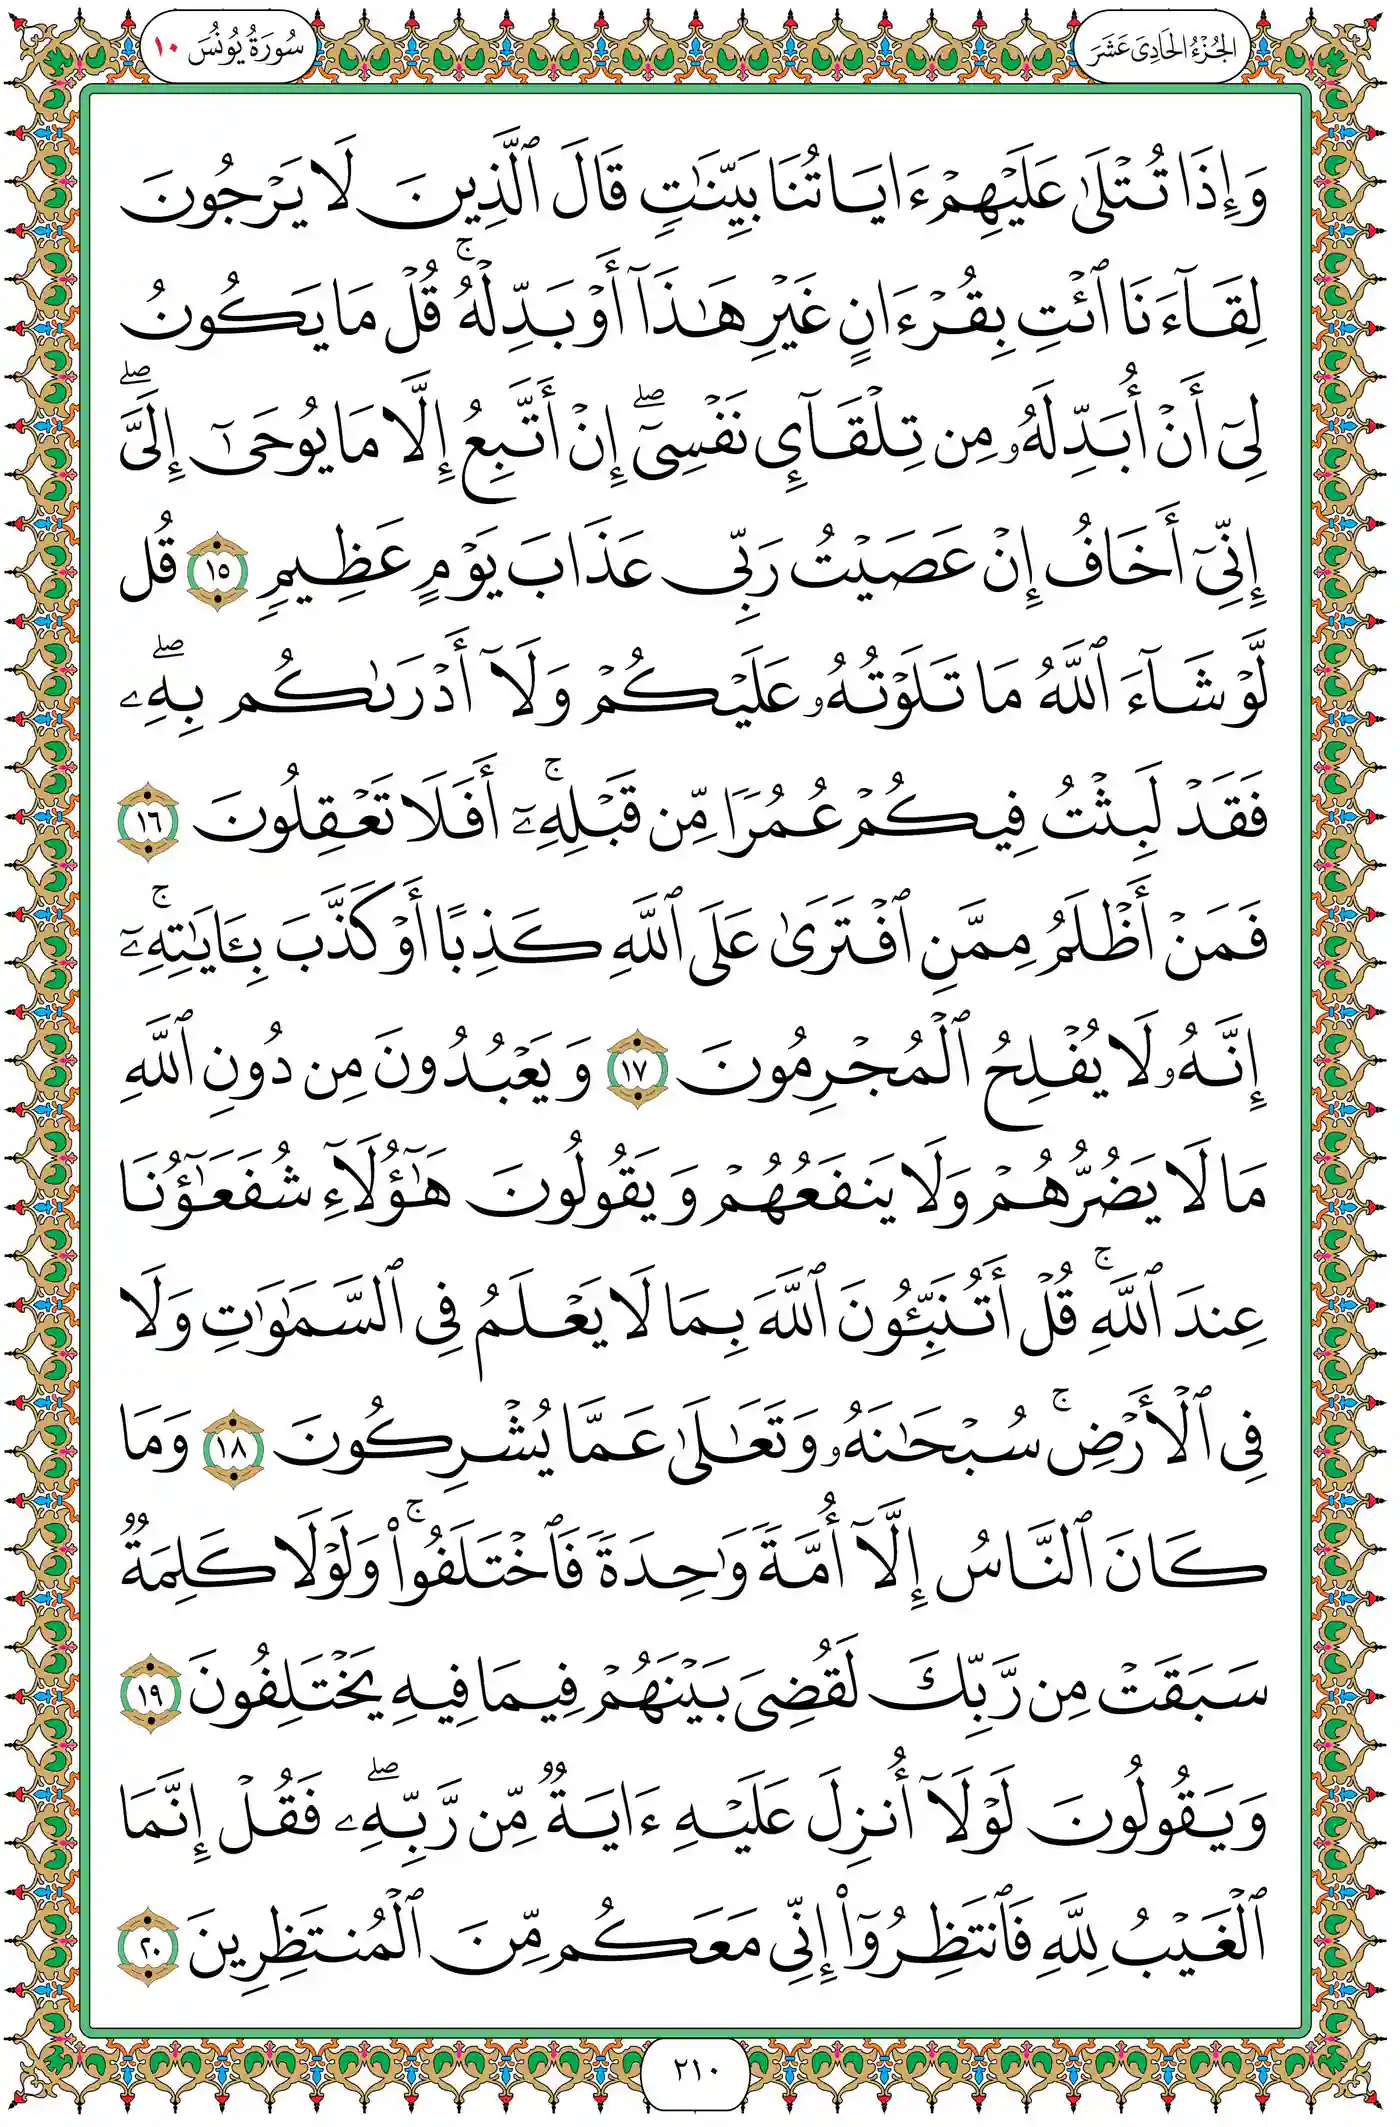 الجُزْءُ الحَادِيَ عَشَرَ
سُورَةُ يُونُسَ ١٠
وَإِذَا تُتْلَىٰ عَلَيْهِمْ ءَايَاتُنَا بَيِّنَٰتٍ قَالَ ٱلَّذِينَ لَا يَرْجُونَ
لِقَآءَنَا ٱئْتِ بِقُرْءَانٍ غَيْرِ هَٰذَآ أَوْ بَدِّلْهُ ۚ قُلْ مَا يَكُونُ
لِىٓ أَنْ أُبَدِّلَهُۥ مِن تِلْقَآئِ نَفْسِىٓ ۖ إِنْ أَتَّبِعُ إِلَّا مَا يُوحَىٰٓ إِلَىَّ ۖ
إِنِّىٓ أَخَافُ إِنْ عَصَيْتُ رَبِّى عَذَابَ يَوْمٍ عَظِيمٍ ١٥ قُل
لَّوْ شَآءَ ٱللَّهُ مَا تَلَوْتُهُۥ عَلَيْكُمْ وَلَآ أَدْرَىٰكُم بِهِۦ ۖ
فَقَدْ لَبِثْتُ فِيكُمْ عُمُرًا مِّن قَبْلِهِۦٓ ۚ أَفَلَا تَعْقِلُونَ ١٦
فَمَنْ أَظْلَمُ مِمَّنِ ٱفْتَرَىٰ عَلَى ٱللَّهِ كَذِبًا أَوْ كَذَّبَ بِـَٔايَٰتِهِۦٓ ۚ
إِنَّهُۥ لَا يُفْلِحُ ٱلْمُجْرِمُونَ ١٧ وَيَعْبُدُونَ مِن دُونِ ٱللَّهِ
مَا لَا يَضُرُّهُمْ وَلَا يَنفَعُهُمْ وَيَقُولُونَ هَٰٓؤُلَآءِ شُفَعَٰٓؤُنَا
عِندَ ٱللَّهِ ۚ قُلْ أَتُنَبِّـُٔونَ ٱللَّهَ بِمَا لَا يَعْلَمُ فِى ٱلسَّمَٰوَٰتِ وَلَا
فِى ٱلْأَرْضِ ۚ سُبْحَٰنَهُۥ وَتَعَٰلَىٰ عَمَّا يُشْرِكُونَ ١٨ وَمَا
كَانَ ٱلنَّاسُ إِلَّآ أُمَّةً وَٰحِدَةً فَٱخْتَلَفُوا۟ ۚ وَلَوْلَا كَلِمَةٌ
سَبَقَتْ مِن رَّبِّكَ لَقُضِىَ بَيْنَهُمْ فِيمَا فِيهِ يَخْتَلِفُونَ ١٩
وَيَقُولُونَ لَوْلَآ أُنزِلَ عَلَيْهِ ءَايَةٌ مِّن رَّبِّهِۦ ۖ فَقُلْ إِنَّمَا
ٱلْغَيْبُ لِلَّهِ فَٱنتَظِرُوٓا۟ إِنِّى مَعَكُم مِّنَ ٱلْمُنتَظِرِينَ ٢٠
٢١٠